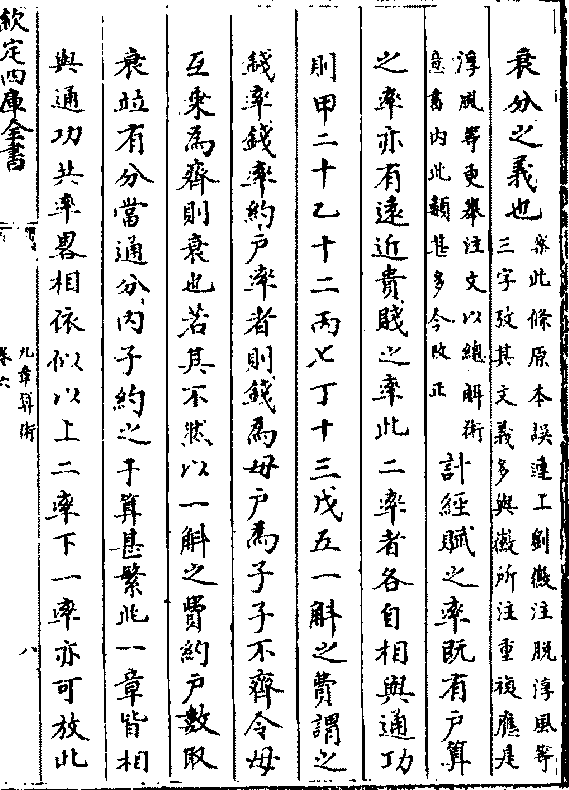 衰分之義也案此條原本誤連上劉徽注脫淳風等
三字攷其文義多與徽所注重複應是
淳風等更舉注文以總解術
意書内此類甚多今改正計經賦之率既有户算
之率亦有遠近貴賤之率此二率者各自相與通功
則甲二十乙十二丙七丁十三戊五一斛之費謂之
錢率錢率約户率者則錢為母户為子子不齊令母
互乘為齊則衰也若其不然以一斛之費約户數取
衰竝有分當通分内子約之于算甚繁此一章皆相
與通功共率畧相依似以上二率下一率亦可放此
欽定四庫全書
九章算術
卷六
八